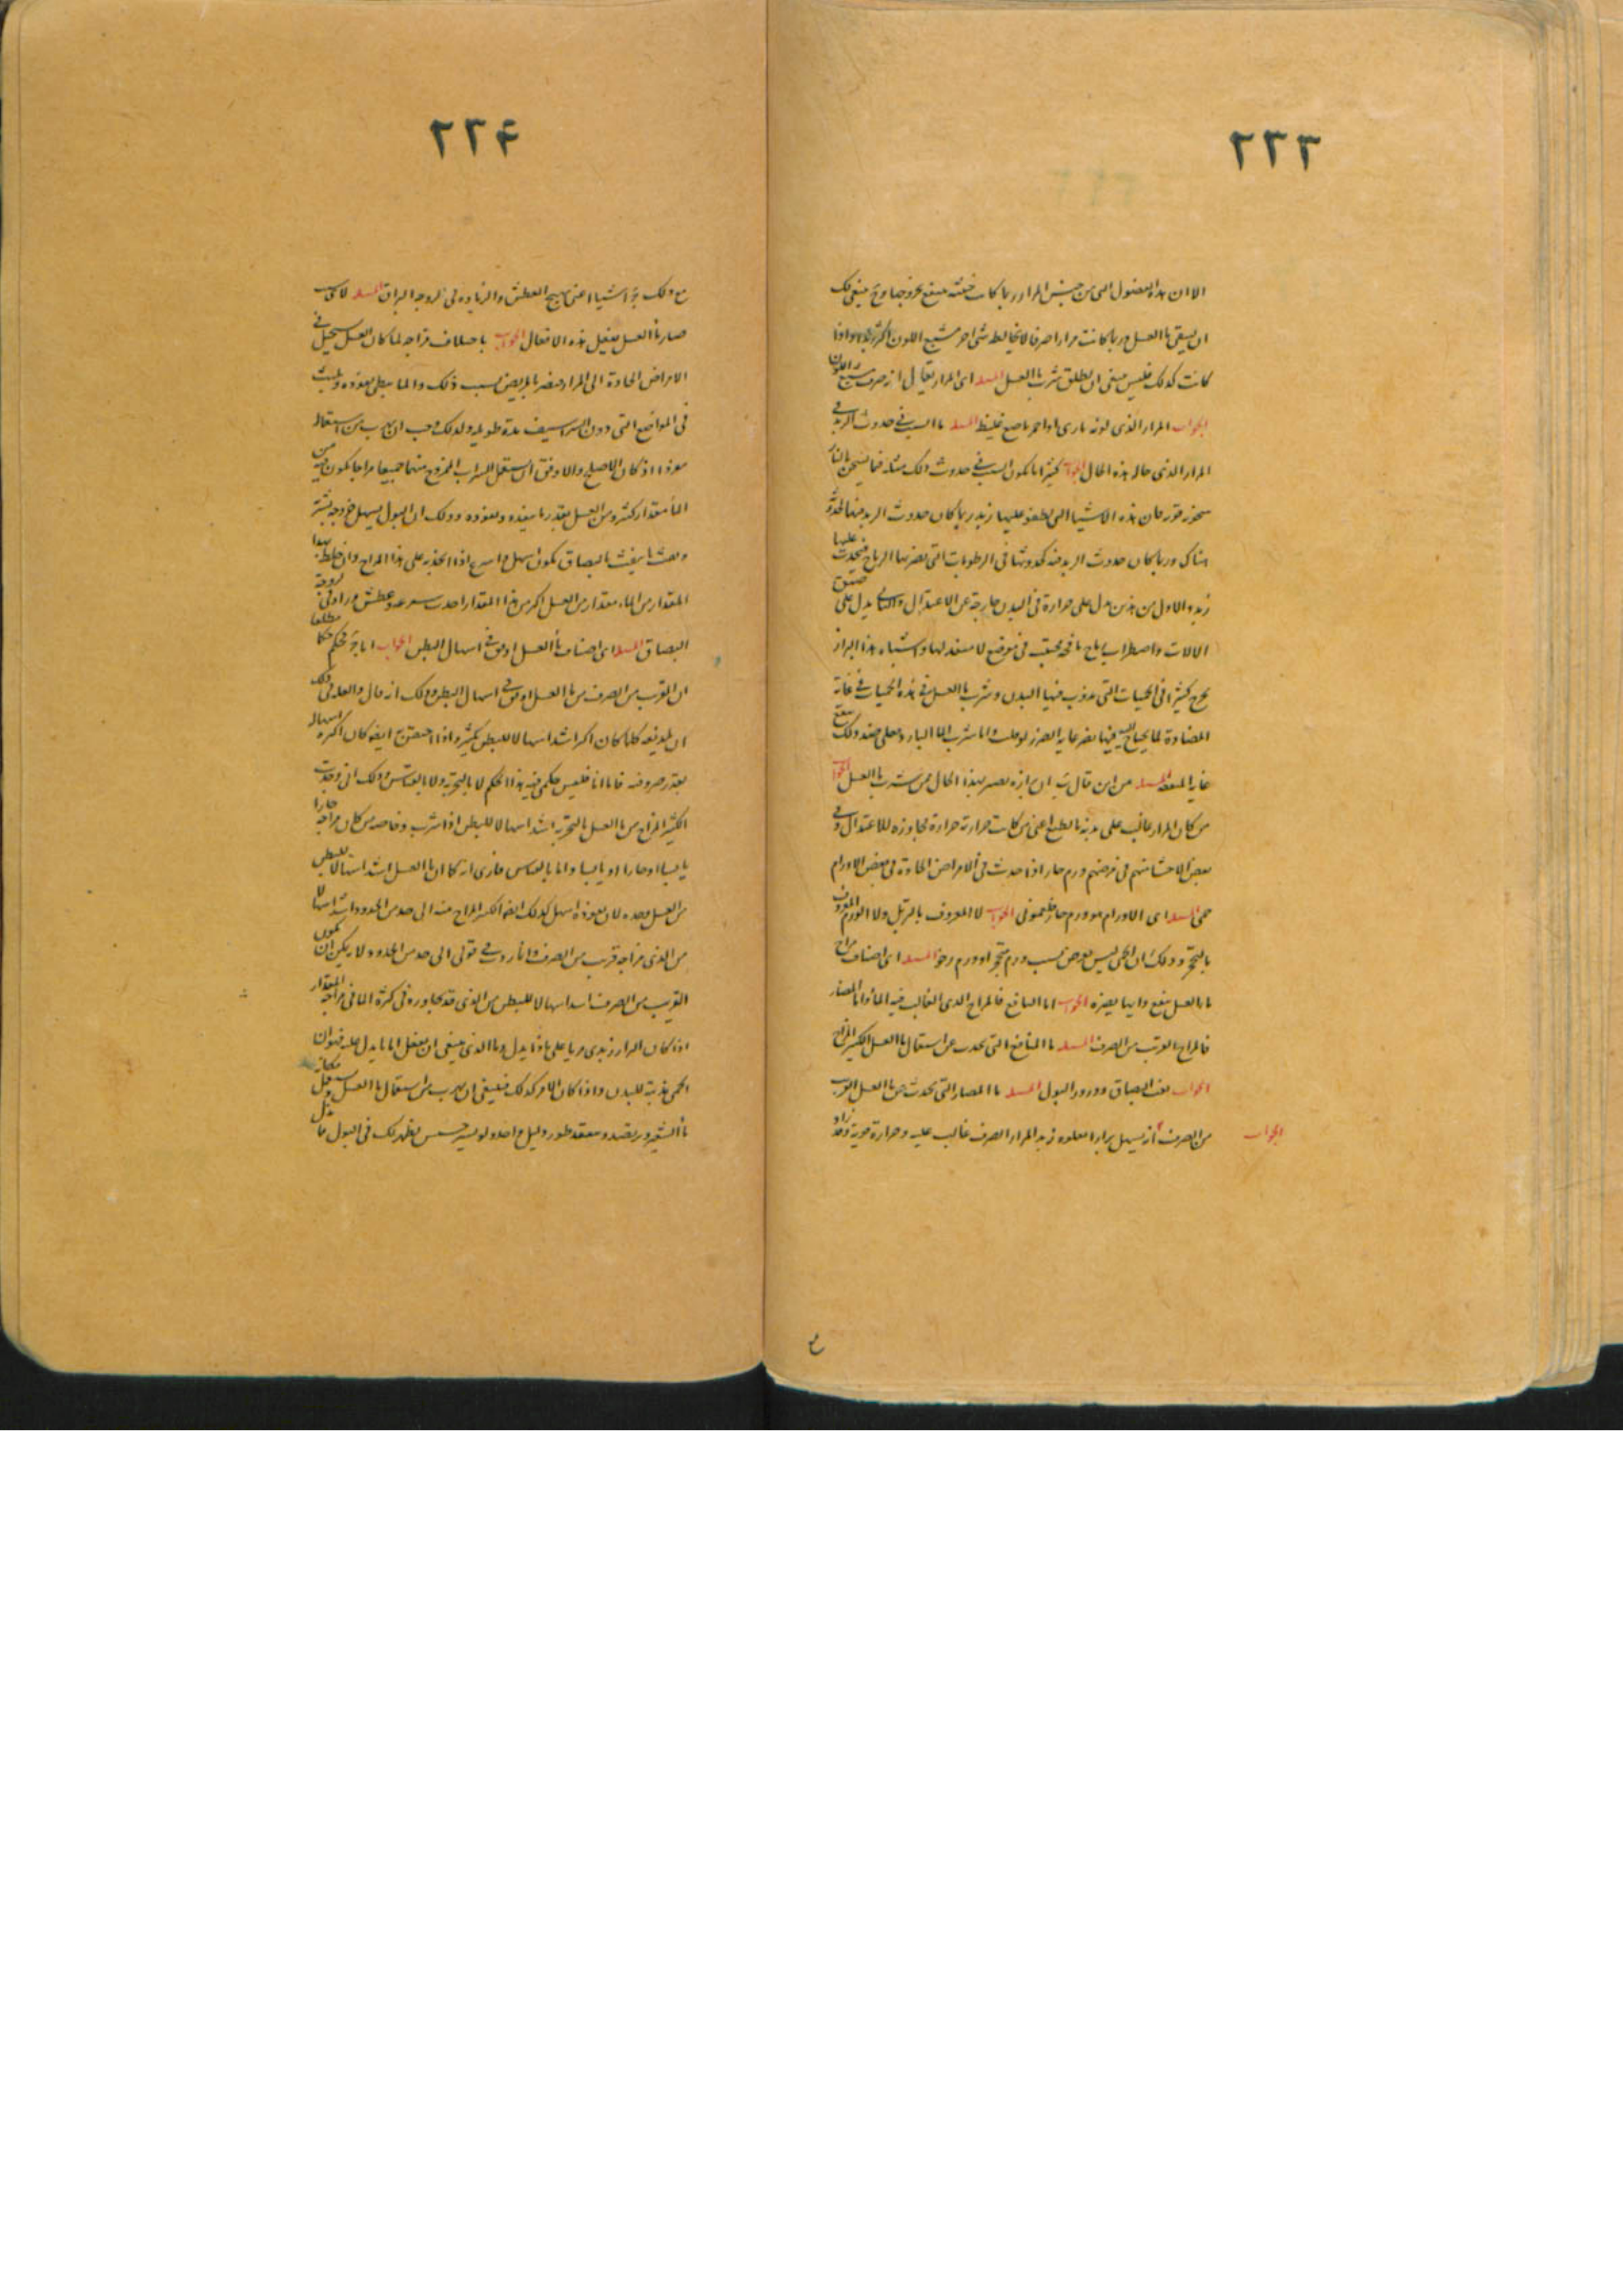 ٢٢٣
الا ان هذه الفضول التي من جنس المرار ربما كانت خبيثة ينتفع بخروجها وح ينبغي لك
ان يسقي ماء العسل وربما كانت مرارا صرفا لا يخالط شئ اخر مشبع اللون اكثر واذا
كانت كذلك فليس ينبغي ان يطلق شرب ماء العسل المسله اى المرار يقال انه صرف مشبع اللون
الجواب المرار الذى لونه نارى او احمر ناصع غليظ المسله ما السبب في حدوث الزبد في
المرار الذى حاله هذه الحال الجواب كثيرا ما يكون السبب في حدوث ذلك مثله فيما يسخن بالنار
من قدور فان هذه الاشياء التي يطفو عليها زبد ربما كان حدوث الزبد منها
هناك وربما كان حدوث الزبد فيه كحدوثها في الرطوبات التي يضربها الرياح فيحدث عليها
زبد والاول من هذين يدل على حرارة في البدن خارجة عن الاعتدال والثاني يدل على ضيق
الالات واضطراب رياح نافخة تحتبس في موضع لا منفذ لها واشباه هذا البراز
يخرج كثيرا في الحميات التي يذوب فيها البدن وشرب ماء العسل في هذه الحميات في غاية
المضادة لما يحتاج اليه فيها يضر غاية الضرر واما شرب الماء البارد فعلى ضد ذلك ينفع
غاية المنفعة المسله من اين قال ان برازه يصير بهذا الحال من شرب ماء العسل الجواب
من كان المرار غالب على بدنه بالطبع اعنى من كانت حرارته حرارة مجاوزة للاعتدال وفي
بعض الاحشاء منهم في مرضهم ورم حار اذا حدث في الامراض الحادة في بعض الاورام
حمى المسله اى الاورام هو ورم حار فلغمونى الجواب لا المعروف بالترهل ولا الورم المعروف
بالتحجر وذلك ان الحمى ليس تعرض بسبب ورم متحجر او ورم رخو المسله اى اصناف مزاج
ماء العسل ينفع وايها يضره الجواب اما النافع فالمزاج الذى الغالب فيه الماء واما الضار
فالمزاج القريب من الصرف المسله ما المنافع التي تحدث عن استعمال ماء العسل الكثير المزاج
الجواب نفث البصاق ودرور البول المسله ما المضار التي تحدث عن ماء العسل القريب
من الصرف الجواب انه يسهل برازا يعلوه زبد المرار الصرف غالب عليه وحرارة قوية وقد زاد
٢٢٤
مع ذلك ج اشياء اعنى تهييج العطش والزيادة في لزوجة البزاق المسله لاى سبب
صار ماء العسل يفعل هذه الافعال الجواب باختلاف مزاجه لما كان العسل يستحيل في
الامراض الحادة الى المرار فيضر بالمريض بسبب ذلك والماء يبطى نفوذه ويلبث
في المواضع التي دون الشراسيف مدة طويلة ولذلك وجب ان يهرب من استعماله
مفردا اذ كان الاصلح والاوفق ان يستعمل الشراب الممزوج منهما جميعا مزاجا يكون فيه من
الماء مقدار كثير ومن العسل بقدر ما ينفذه ويغوده وذلك ان البول يسهل خروجه بشرب
ونفث ما ينفث بالبصاق يكون اسهل واسرع اذا انحذر على هذا المزاج وان خلط بهذا
المقدار من الماء مقدار من العسل اكثر من هذا المقدار احدث سرعة وعطش وزاد في لزوجة
البصاق المسله اى اصناف ماء العسل اوفق في اسهال البطن الجواب اما ج فحكم حكما مطلقا
ان القريب من الصرف من ماء العسل اوفق في اسهال البطن وذلك انه قال والعلة في ذلك
ان تلذيعه كلما كان اكثر اشد اسهالا للبطن بكثير واذا احتقن ايضا كان اكثر اسهاله
بقدر صروفته فاما انا فليس حكمى فيه هذا الحكم لا بالتجربة ولا بالقياس وذلك انى وجدت
الكثير المزاج من ماء العسل بالتجربة اشد اسهالا للبطن اذا شرب وخاصة من كان مزاجه حارا
يابسا او حارا او يابسا واما بالقياس فارى انه كما ان ماء العسل اشد اسهالا للبطن
من العسل وحده لان نفوذه اسهل كذلك ايضا الكثير المزاج منه الى حد من الحدود اشد اسهالا
من الذى مزاجه قريب من الصرف وانا ردت في قولى الى حد من الحدود لا يمكن ان يكون
القريب من الصرف اشد اسهالا للبطن من الذى قد تجاوزه في كثرة الماء في مزاجه المقدار
اذا كان البراز زبدى مريا على ماذا يدل وما الذى ينبغى ان يفعل اما ما يدل عليه فهو ان
الحمى مذيبة للبدن واذا كان الامر كذلك فينبغى ان يهرب من استعمال ماء العسل ويستعمل مكانه
ماء الشعير